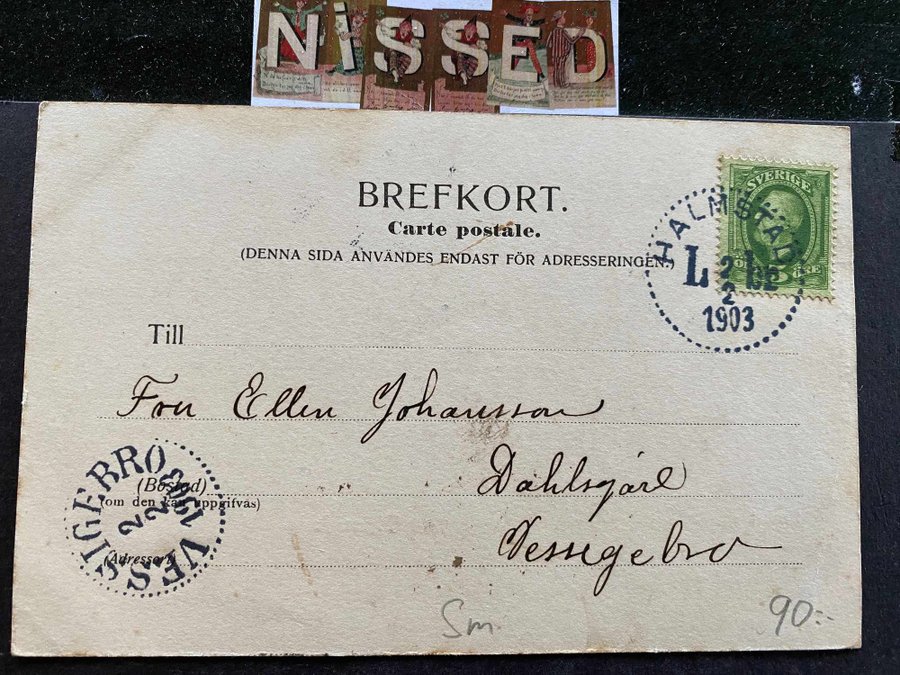 NiSSED
BREFKORT.
Carte postale.
(DENNA SIDA ANVÄNDES ENDAST FÖR ADRESSERINGEN.)
SVERIGE
5 ÖRE
HALMSTAD
L 2 LBR
2
1903
Till
Fru Ellen Johansson
(Bostad)
(om den kan uppgifvas)
Dahlsgård
(Adressort)
Vessigebro
VESSIGEBRO
2 2 1903
Sm
90:-